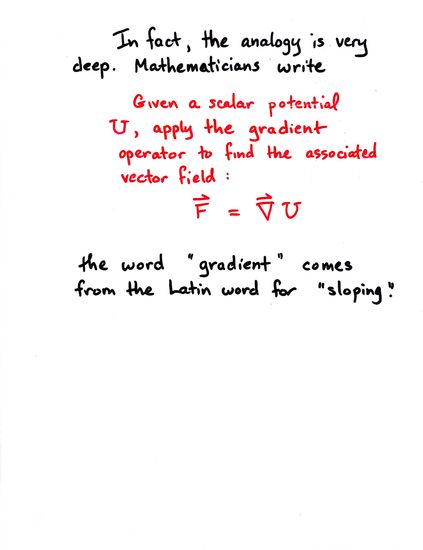 In fact, the analogy is very
deep. Mathematicians write
Given a scalar potential
U, apply the gradient
operator to find the associated
vector field :
F⃗ = ∇⃗ U
the word "gradient" comes
from the Latin word for "sloping".